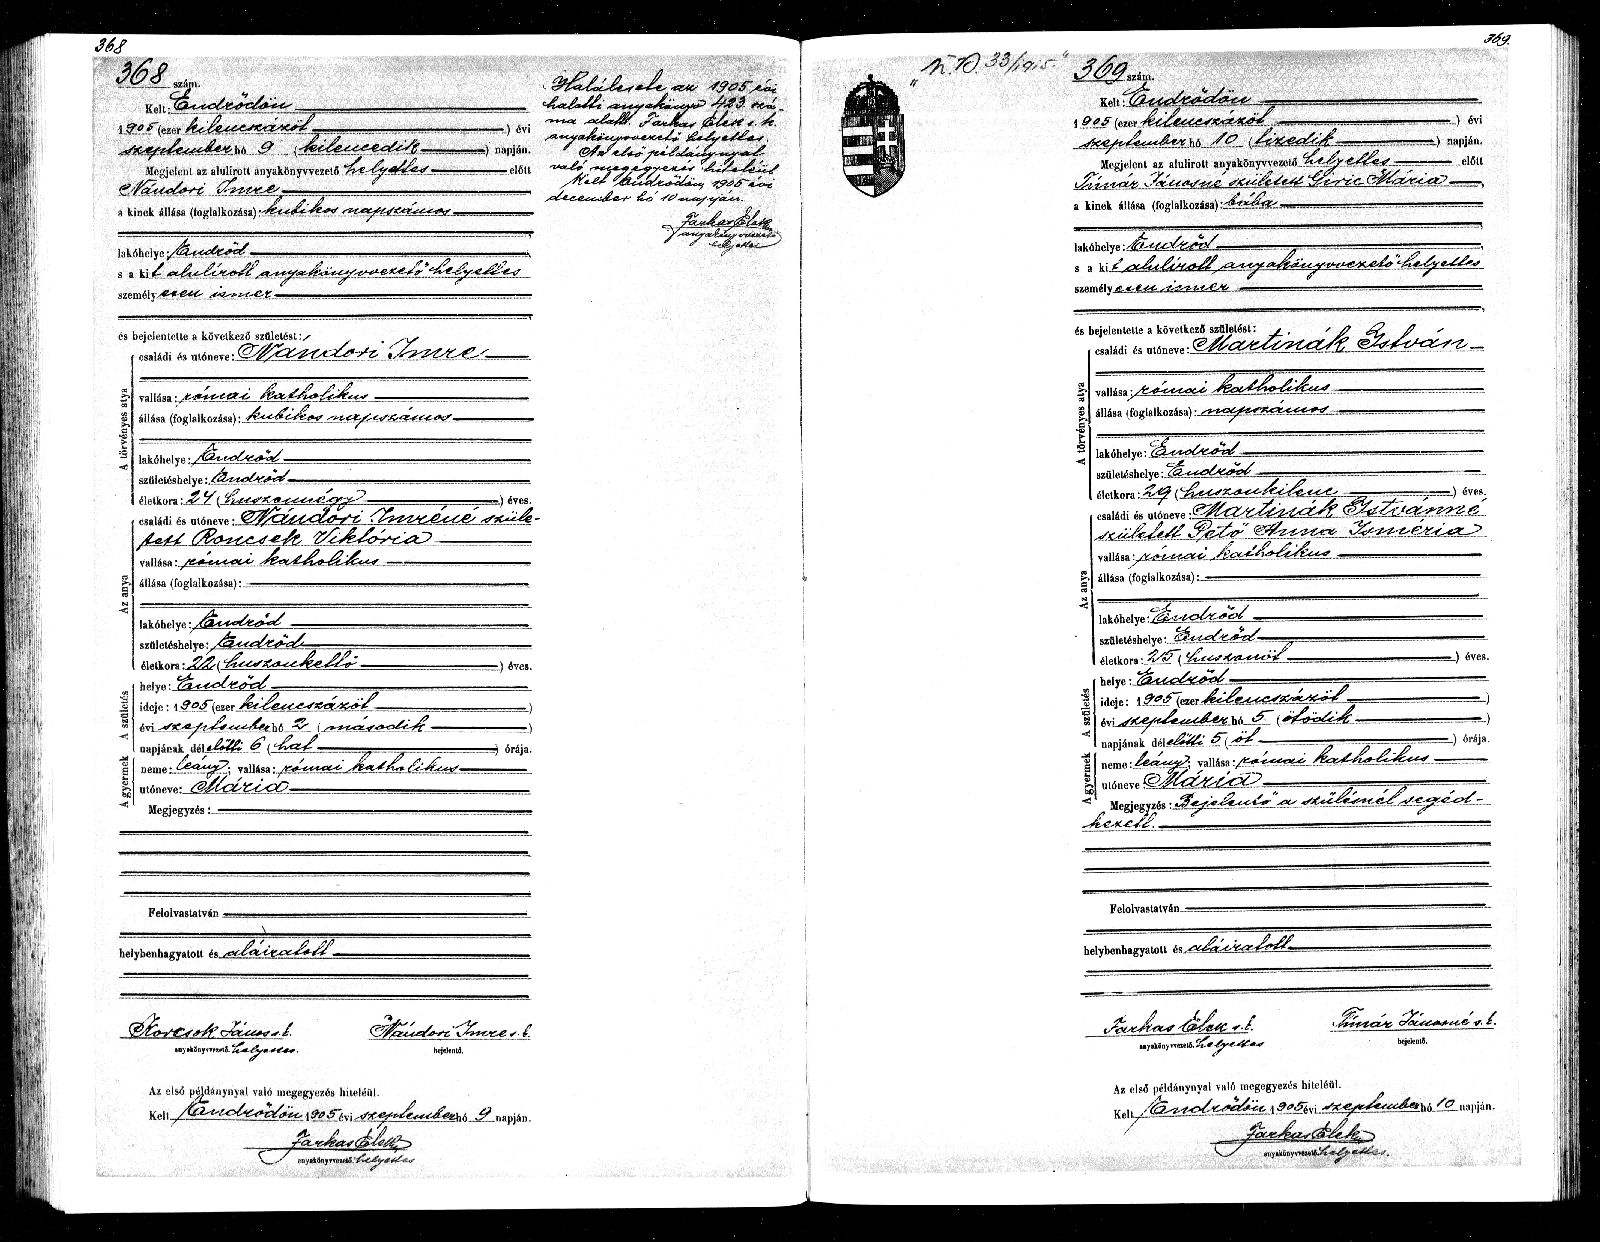 368
368 szám.
Kelt: Endrődön
1905 (ezer kilenczszázöt) évi
szeptember hó 9 (kilenczedik) napján.
Megjelent az alulirott anyakönyvvezető helyettes előtt
Nándori Imre
a kinek állása (foglalkozása): kubikos napszámos
lakóhelye: Endrőd
s a kit alulírott anyakönyvvezető helyettes
személyesen ismer
és bejelentette a következő születést:
A törvényes atya
családi és utóneve: Nándori Imre
vallása: római katholikus
állása (foglalkozása): kubikos napszámos
lakóhelye: Endrőd
születéshelye: Endrőd
életkora: 24 (huszonnégy) éves.
Az anya
családi és utóneve: Nándori Imréné szüle-
tett Roncsek Viktória
vallása: római katholikus
állása (foglalkozása):
lakóhelye: Endrőd
születéshelye: Endrőd
életkora: 22 (huszonkettő) éves.
A születés
helye: Endrőd
ideje: 1905 (ezer kilenczszázöt)
évi szeptember hó 2 (második)
napjának délelőtti 6 (hat) órája.
A gyermek
neme: leány; vallása: római katholikus
utóneve: Mária
Megjegyzés:
Felolvastatván
helybenhagyatott és aláiratott
Korcsok János s.k. Nándori Imre s.k.
anyakönyvvezető helyettes. bejelentő.
Az első példánynyal való megegyezés hiteléül.
Kelt Endrődön 1905 évi szeptember hó 9 napján.
Farkas Elek
anyakönyvvezető helyettes
Halálesete az 1905 évi
halotti anyakönyv 423 szá-
ma alatt. Farkas Elek s.k.
anyakönyvvezető helyettes.
Az első példánynyal
való megegyezés hiteléül
Kelt Endrődön 1905 évi
december hó 10 napján.
Farkas Elek
anyakönyvvezető
helyettes
369.
33/1915"
369 szám.
Kelt: Endrődön
1905 (ezer kilenczszázöt) évi
szeptember hó 10 (tizedik) napján.
Megjelent az alulirott anyakönyvvezető helyettes előtt
Tímár Jánosné született Giric Mária
a kinek állása (foglalkozása): bába
lakóhelye: Endrőd
s a kit alulírott anyakönyvvezető helyettes
személyesen ismer
és bejelentette a következő születést:
A törvényes atya
családi és utóneve: Martinák István
vallása: római katholikus
állása (foglalkozása): napszámos
lakóhelye: Endrőd
születéshelye: Endrőd
életkora: 29 (huszonkilenc) éves.
Az anya
családi és utóneve: Martinák Istvánné
született Pető Anna Isméria
vallása: római katholikus
állása (foglalkozása):
lakóhelye: Endrőd
születéshelye: Endrőd
életkora: 25 (huszonöt) éves.
A születés
helye: Endrőd
ideje: 1905 (ezer kilenczszázöt)
évi szeptember hó 5 (ötödik)
napjának délelőtti 5 (öt) órája.
A gyermek
neme: leány; vallása: római katholikus
utóneve: Mária
Megjegyzés: Bejelentő a szülésnél segéd-
kezett.
Felolvastatván
helybenhagyatott és aláiratott
Farkas Elek s.k. Tímár Jánosné s.k.
anyakönyvvezető helyettes bejelentő.
Az első példánynyal való megegyezés hiteléül.
Kelt Endrődön 1905 évi szeptember hó 10 napján.
Farkas Elek
anyakönyvvezető helyettes.